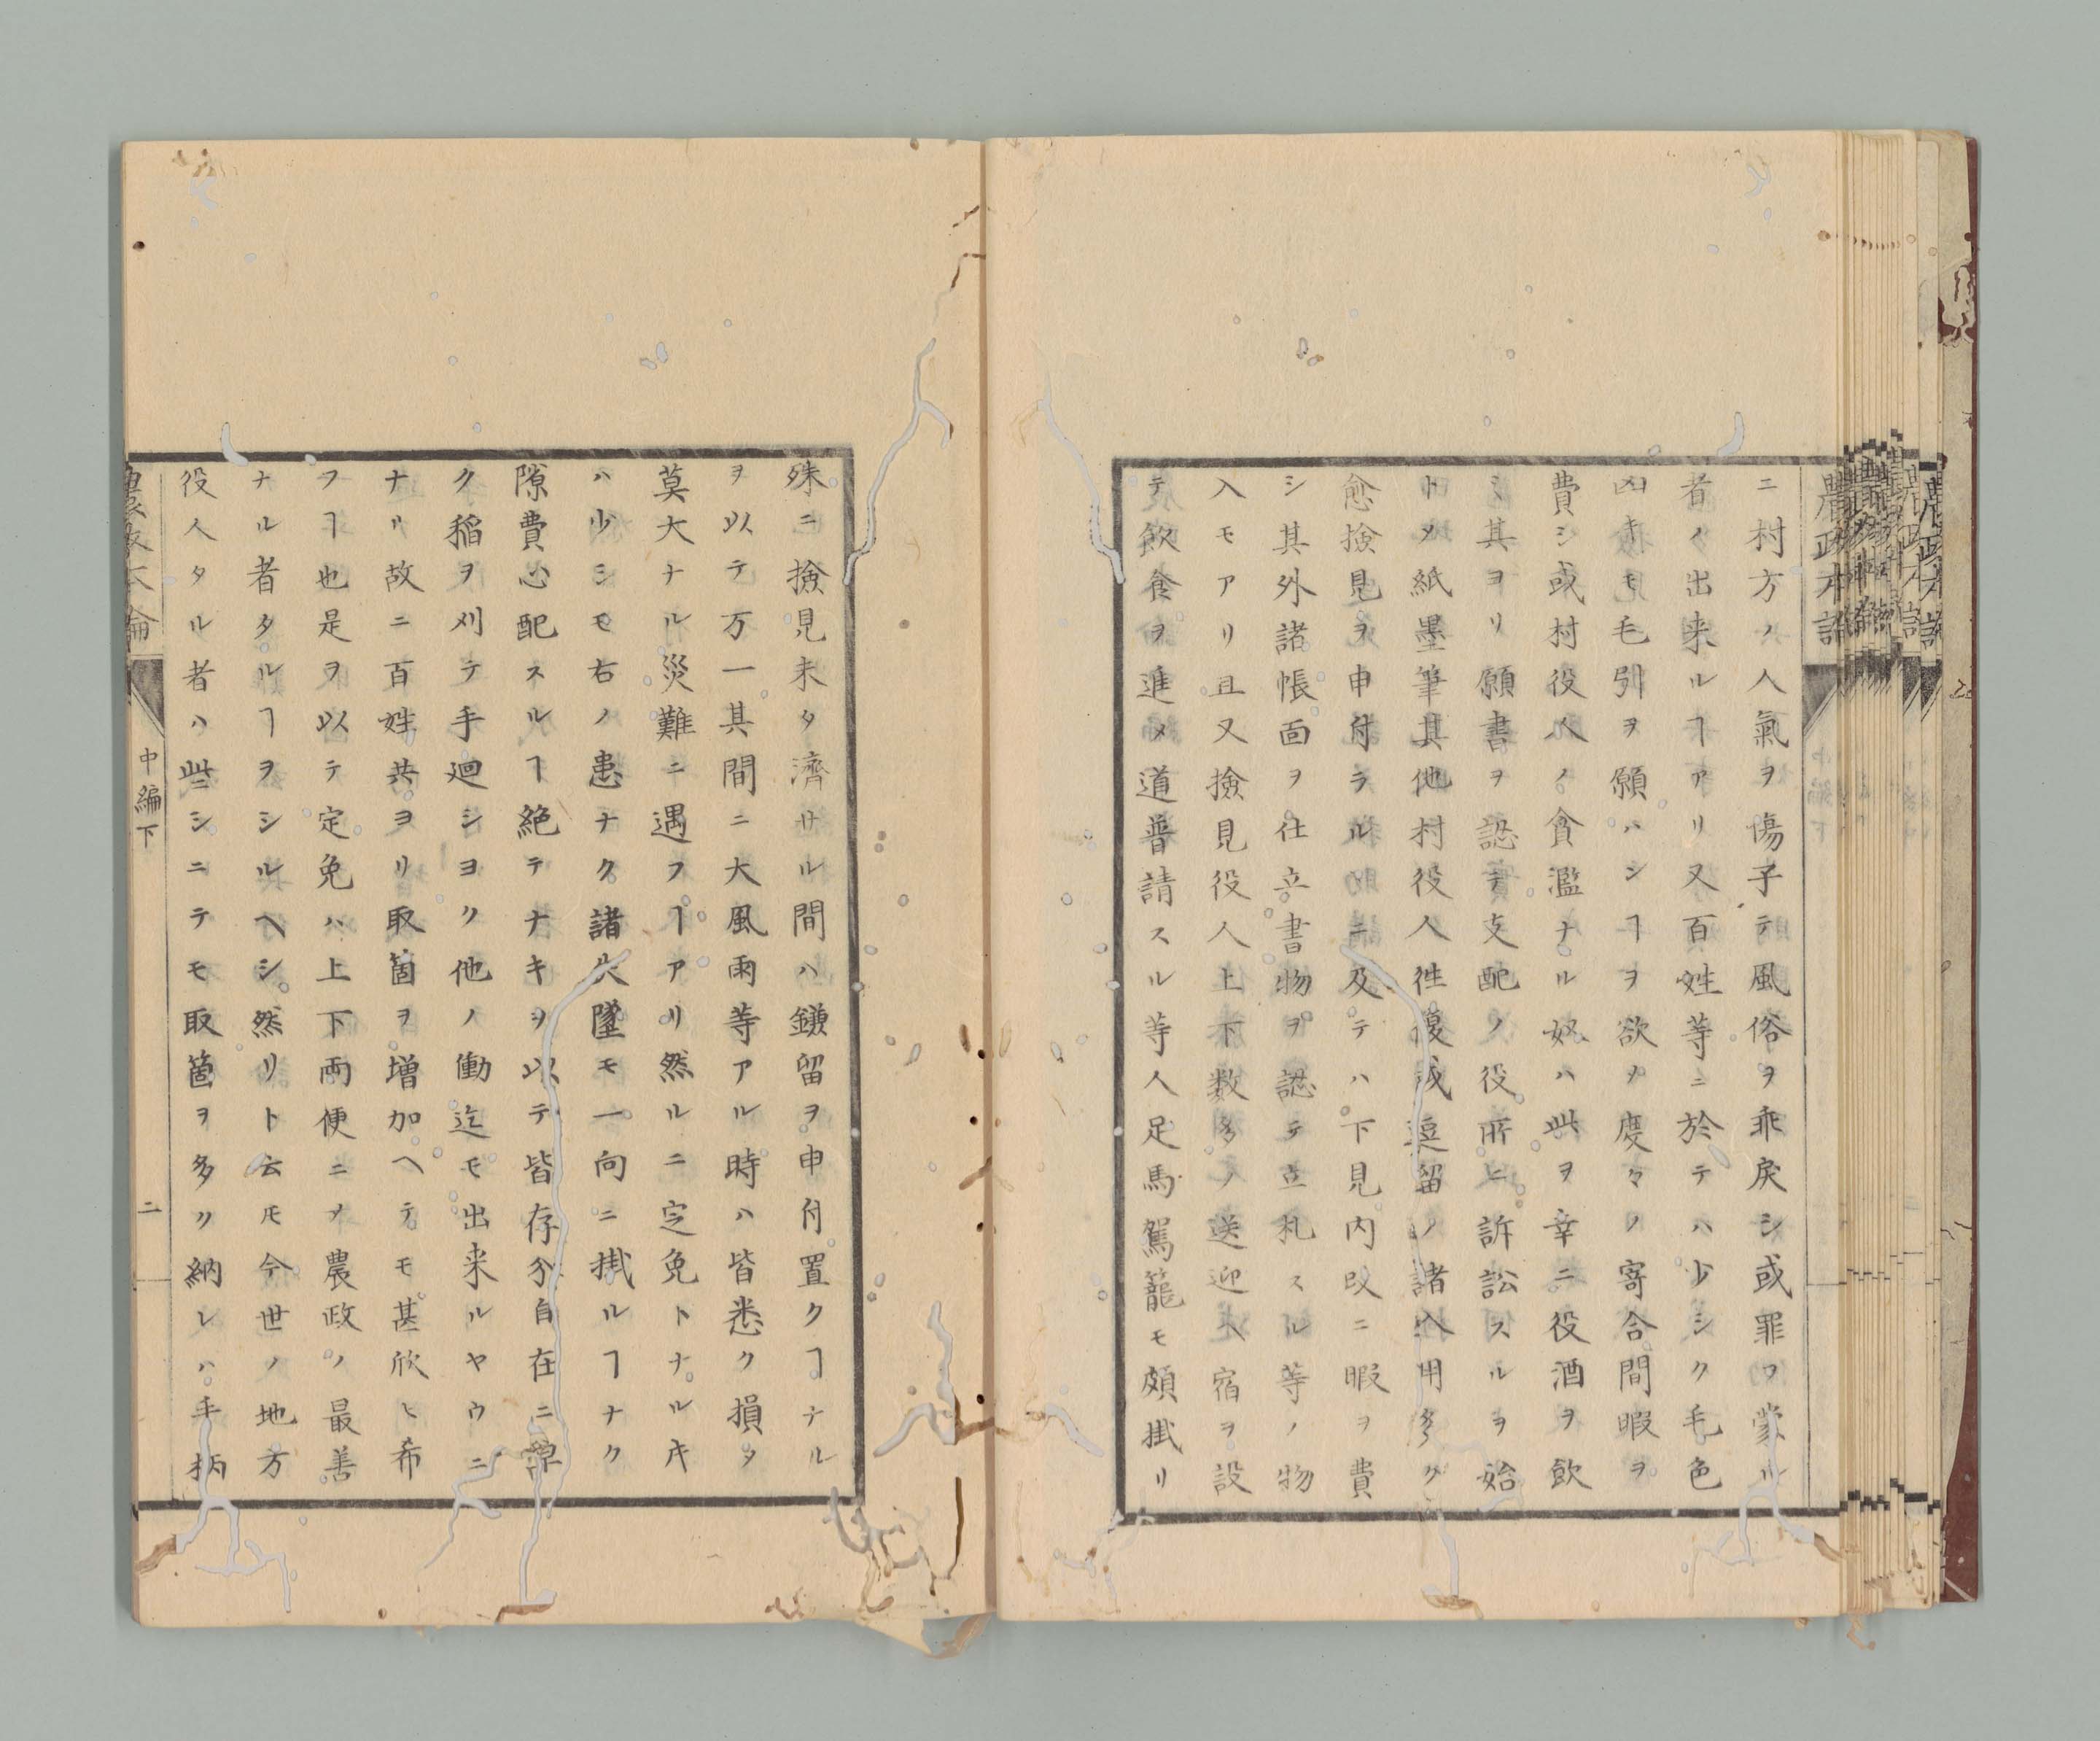 ニ村方ノ人氣ヲ傷子テ風俗ヲ乖戻シ或罪ヲ蒙ル
者ノ出来ルヿアリ又百姓等ニ於テハ少シク毛色
凶キモ毛引ヲ願ハンヿヲ欲メ度々ノ寄合間暇ヲ
費シ或村役人ノ貪濫ナル奴ハ此ヲ幸ニ役酒ヲ飲
ミ其ヨリ願書ヲ認テ支配ノ役所ニ訴訟スルヲ始
トメ紙墨筆其他村役人徃復或逗留ノ諸入用多ク
愈撿見ヲ申付ラルニ及テハ下見内改ニ暇ヲ費
シ其外諸帳面ヲ仕立書物ヲ認テ立札スル等ノ物
入モアリ且又撿見役人上下数多ノ送迎止宿ヲ設
テ飲食ヲ進メ道普請スル等人足馬駕籠モ頗掛リ
殊ニ撿見未タ濟サル間ハ鎌留ヲ申付置クヿナル
ヲ以テ万一其間ニ大風雨等アル時ハ皆悉ク損タ
莫大ナル災難ニ遇フヿアリ然ルニ定免トナル𪜈
ハ少シモ右ノ患ナク諸失墜モ一向ニ掛ルヿナク
隙費心配スルヿ絶テナキヲ以テ皆存分自在ニ
ク稲ヲ刈テ手廻シヨク他ノ働迄モ出来ルヤウニ
ナリ故ニ百姓共ヨリ取箇ヲ増加ヘテモ甚欣ヒ希
フヿ也是ヲ以テ定免ハ上下両便ニメ農政ノ最善
ナル者タルヿヲシルヘシ然リト云𪜈今世ノ地方
役人タル者ハ些シニテモ取箇ヲ多ク納レハ手柄
中編下
二